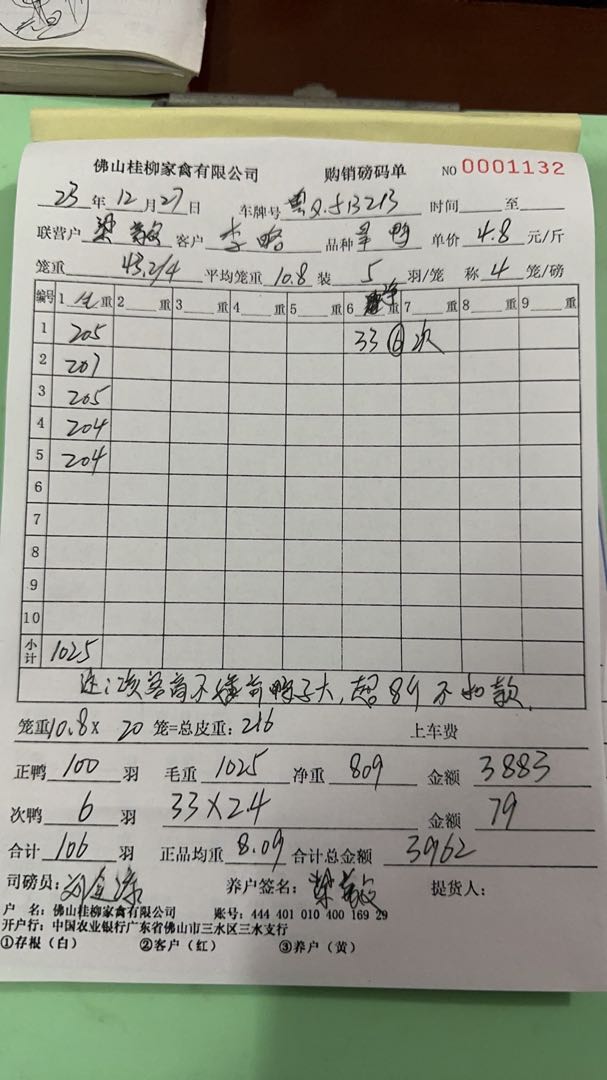 佛山桂柳家禽有限公司 购销磅码单 NO 0001132
23年12月27日 车牌号 时间 至
联营户 梁 客户 李 品种 鸭 单价 4.8 元/斤
笼重 43.2/4 平均笼重 10.8 装 5 羽/笼 称 4 笼/磅
编号 1 毛重 2 重 3 重 4 重 5 重 6 净重 7 重 8 重 9 重
1 205 33⑥次
2 207
3 205
4 204
5 204
6
7
8
9
10
小计 1025
注:该客商不 鸭子大,超8斤不扣款
笼重10.8×20笼=总皮重:216 上车费
正鸭 100 羽 毛重 1025 净重 809 金额 3883
次鸭 6 羽 33×2.4 金额 79
合计 106 羽 正品均重 8.09 合计总金额 3962
司磅员: 养户签名:梁 提货人:
户 名:佛山桂柳家禽有限公司 账号:444 401 010 400 169 29
开户行:中国农业银行广东省佛山市三水区三水支行
①存根(白) ②客户(红) ③养户(黄)